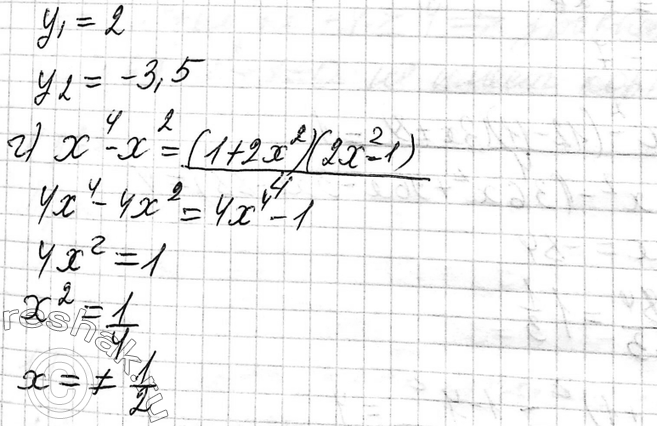 y₁ = 2
y₂ = -3,5
г) x⁴ - x² = (1+2x²)(2x²-1)/4
4x⁴ - 4x² = 4x⁴ - 1
4x² = 1
x² = 1/4
x = ± 1/2
reshak.ru
©